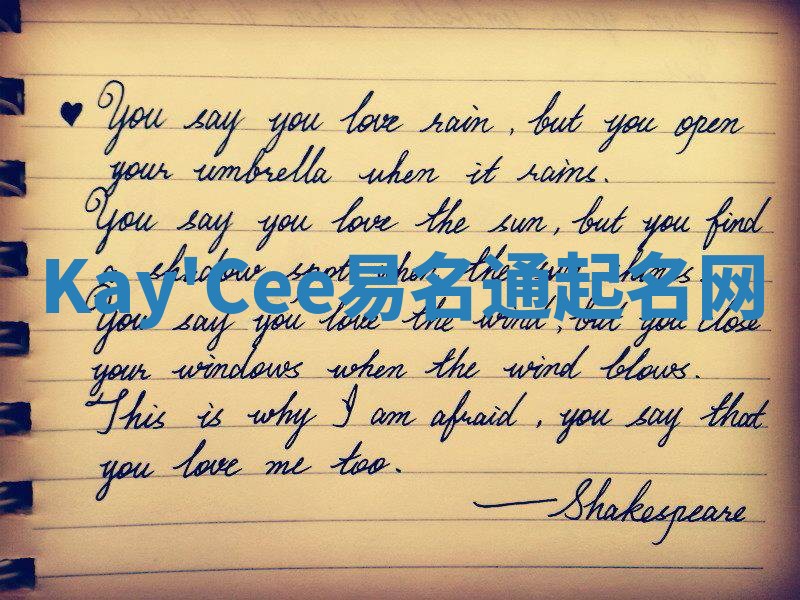 ♥ You say you love rain, but you open
your umbrella when it rains.
You say you love the sun, but you find
a shadow spot when the sun shines.
Kay'Cee易名通起名网
You say you love the wind, but you close
your windows when the wind blows.
This is why I am afraid, you say that
you love me too.
— Shakespeare